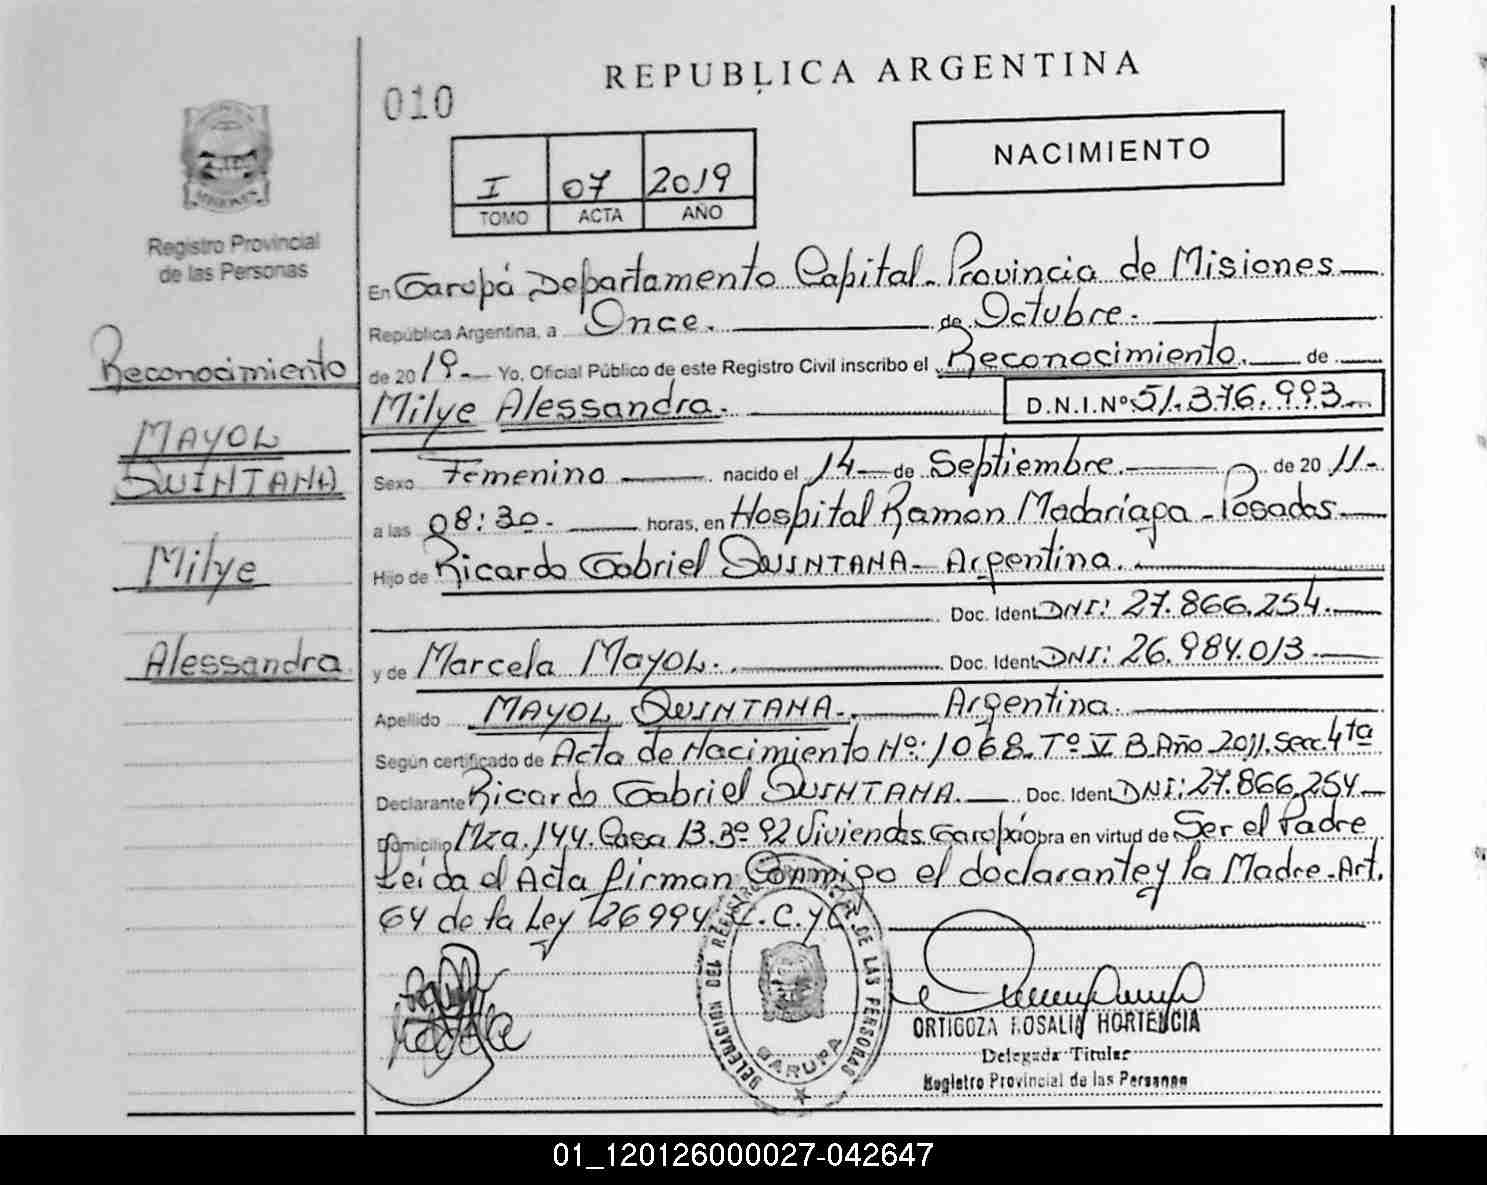 REPUBLICA ARGENTINA
010
NACIMIENTO
I 07 2019
TOMO ACTA AÑO
Registro Provincial
de las Personas
En Garupá Departamento Capital - Provincia de Misiones
República Argentina, a Once. de Octubre.
de 2019. Yo, Oficial Público de este Registro Civil inscribo el Reconocimiento. de
Milye Alessandra. D.N.I.Nº 51.376.993
Reconocimiento
MAYOL
QUINTANA
Milye
Alessandra
Sexo Femenino nacido el 14 de Septiembre. de 2011-
a las 08:30. horas, en Hospital Ramon Madariaga - Posadas
Hijo de Ricardo Gabriel QUINTANA - Argentina.
Doc. Ident. DNI: 27.866.254.
y de Marcela MAYOL. Doc. Ident. DNI: 26.984.013
Apellido MAYOL QUINTANA. Argentina.
Según certificado de Acta de Nacimiento Nº: 1068. Tº V B. Año 2011. Secc. 4ta
Declarante Ricardo Gabriel QUINTANA. Doc. Ident. DNI: 27.866.254
Domicilio Mza. 144. Casa 13. Bº 92 Viviendas Garupá Obra en virtud de Ser el Padre
Leida el Acta firman Conmigo el declarante y la Madre - Art.
64 de la Ley 26994 C.C.yC
DELEGACION DEL REGISTRO DE LAS PERSONAS
GARUPA
ORTIGOZA ROSALIA HORTENCIA
Delegada Titular
Registro Provincial de las Personas
01_120126000027-042647